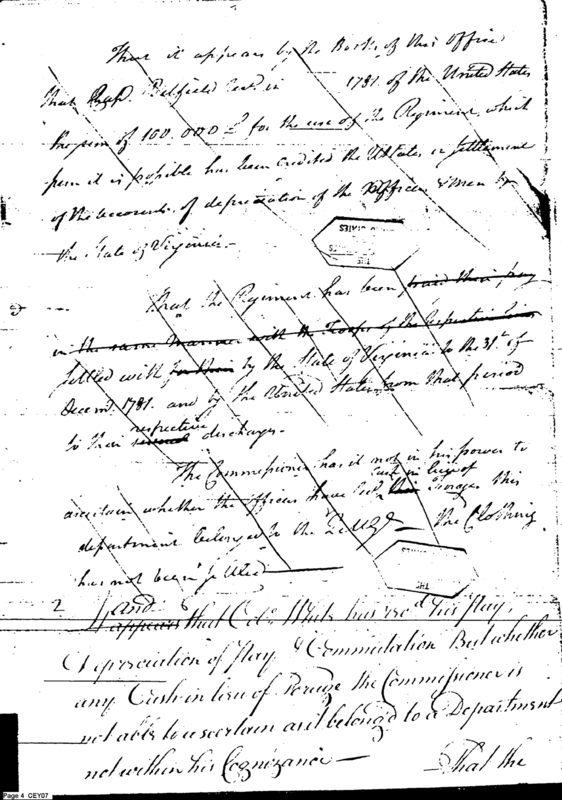 That it appears by the Books of this Office
that Capt. Belfield Recd. in 1781 of the United States
the sum of 100.000 Ds for the use of the Regiment, which
sum it is possible has been credited the U States in settlement
of the accounts of depreciation of the Officers & Men by
the State of Virginia.—
That the Regiment has been paid their pay
in the same manner with the Troops by the respective
settled with by the State of Virginia to the 31st. of
Decemr. 1781. and by the United States from that period
respective
to their several discharges.—
The Commissioner has it not in his power to
Cash in lieu of
ascertain whether the Officers have Recd. Forages this
department belonged to the — The Clothing
has not been settled
2 And
appears that Colo. White has recd. his Pay,
Depreciation of Pay & Commutation But whether
any Cash in lieu of Forage the Commissioner is
not able to ascertain as it belong'd to a Department
not within his Cognizance — That the
THE
STATES
THE
Page 4 CEY07